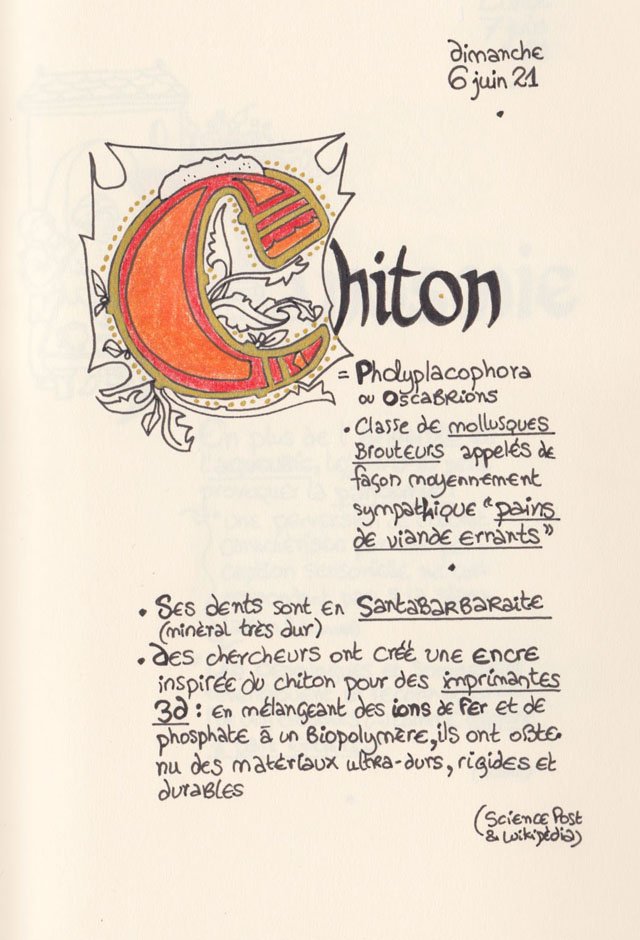 dimanche
6 juin 21
Chiton
= Pholyplacophora
ou Oscabrions
• Classe de mollusques
brouteurs appelés de
façon moyennement
sympathique "pains
de viande errants"
• Ses dents sont en Santabarbaraite
(minéral très dur)
• Des chercheurs ont créé une encre
inspirée du chiton pour des imprimantes
3d : en mélangeant des ions de fer et de
phosphate à un biopolymère, ils ont obte-
nu des matériaux ultra-durs, rigides et
durables
(Science Post
& Wikipédia)